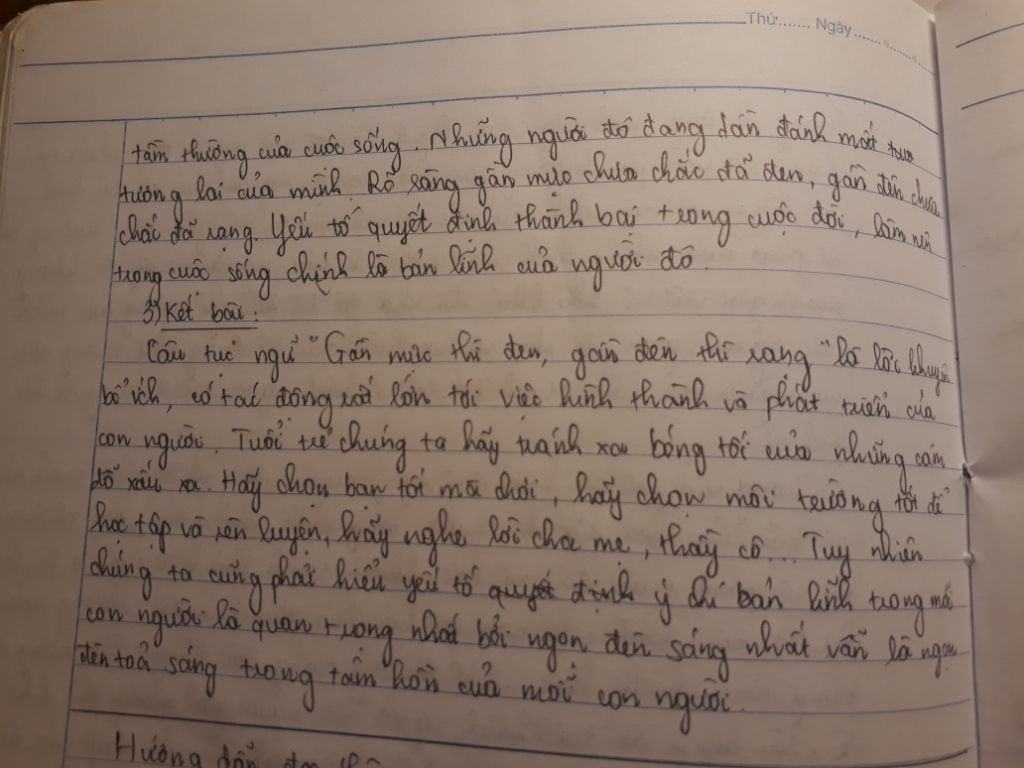 Thứ....... Ngày.........
tầm thường của cuộc sống. Những người đó đang dần đánh mất
tương lai của mình. Rõ ràng gần mực chưa chắc đã đen, gần đèn chưa
chắc đã rạng. Yếu tố quyết định thành bại trong cuộc đời, làm nên
trong cuộc sống chính là bản lĩnh của người đó.
3) Kết bài:
Câu tục ngữ "Gần mực thì đen, gần đèn thì rạng" là lời khuyên
bổ ích, có tác động rất lớn tới việc hình thành và phát triển của
con người. Tuổi trẻ chúng ta hãy tránh xa bóng tối của những cám
dỗ xấu xa. Hãy chọn bạn tốt mà chơi, hãy chọn môi trường tốt để
học tập và rèn luyện, hãy nghe lời cha mẹ, thầy cô... Tuy nhiên
chúng ta cũng phải hiểu yếu tố quyết định ý chí bản lĩnh trong mỗi
con người là quan trọng nhất bởi ngọn đèn sáng nhất vẫn là ngọn
đèn toả sáng trong tâm hồn của mỗi con người.
Hướng dẫn